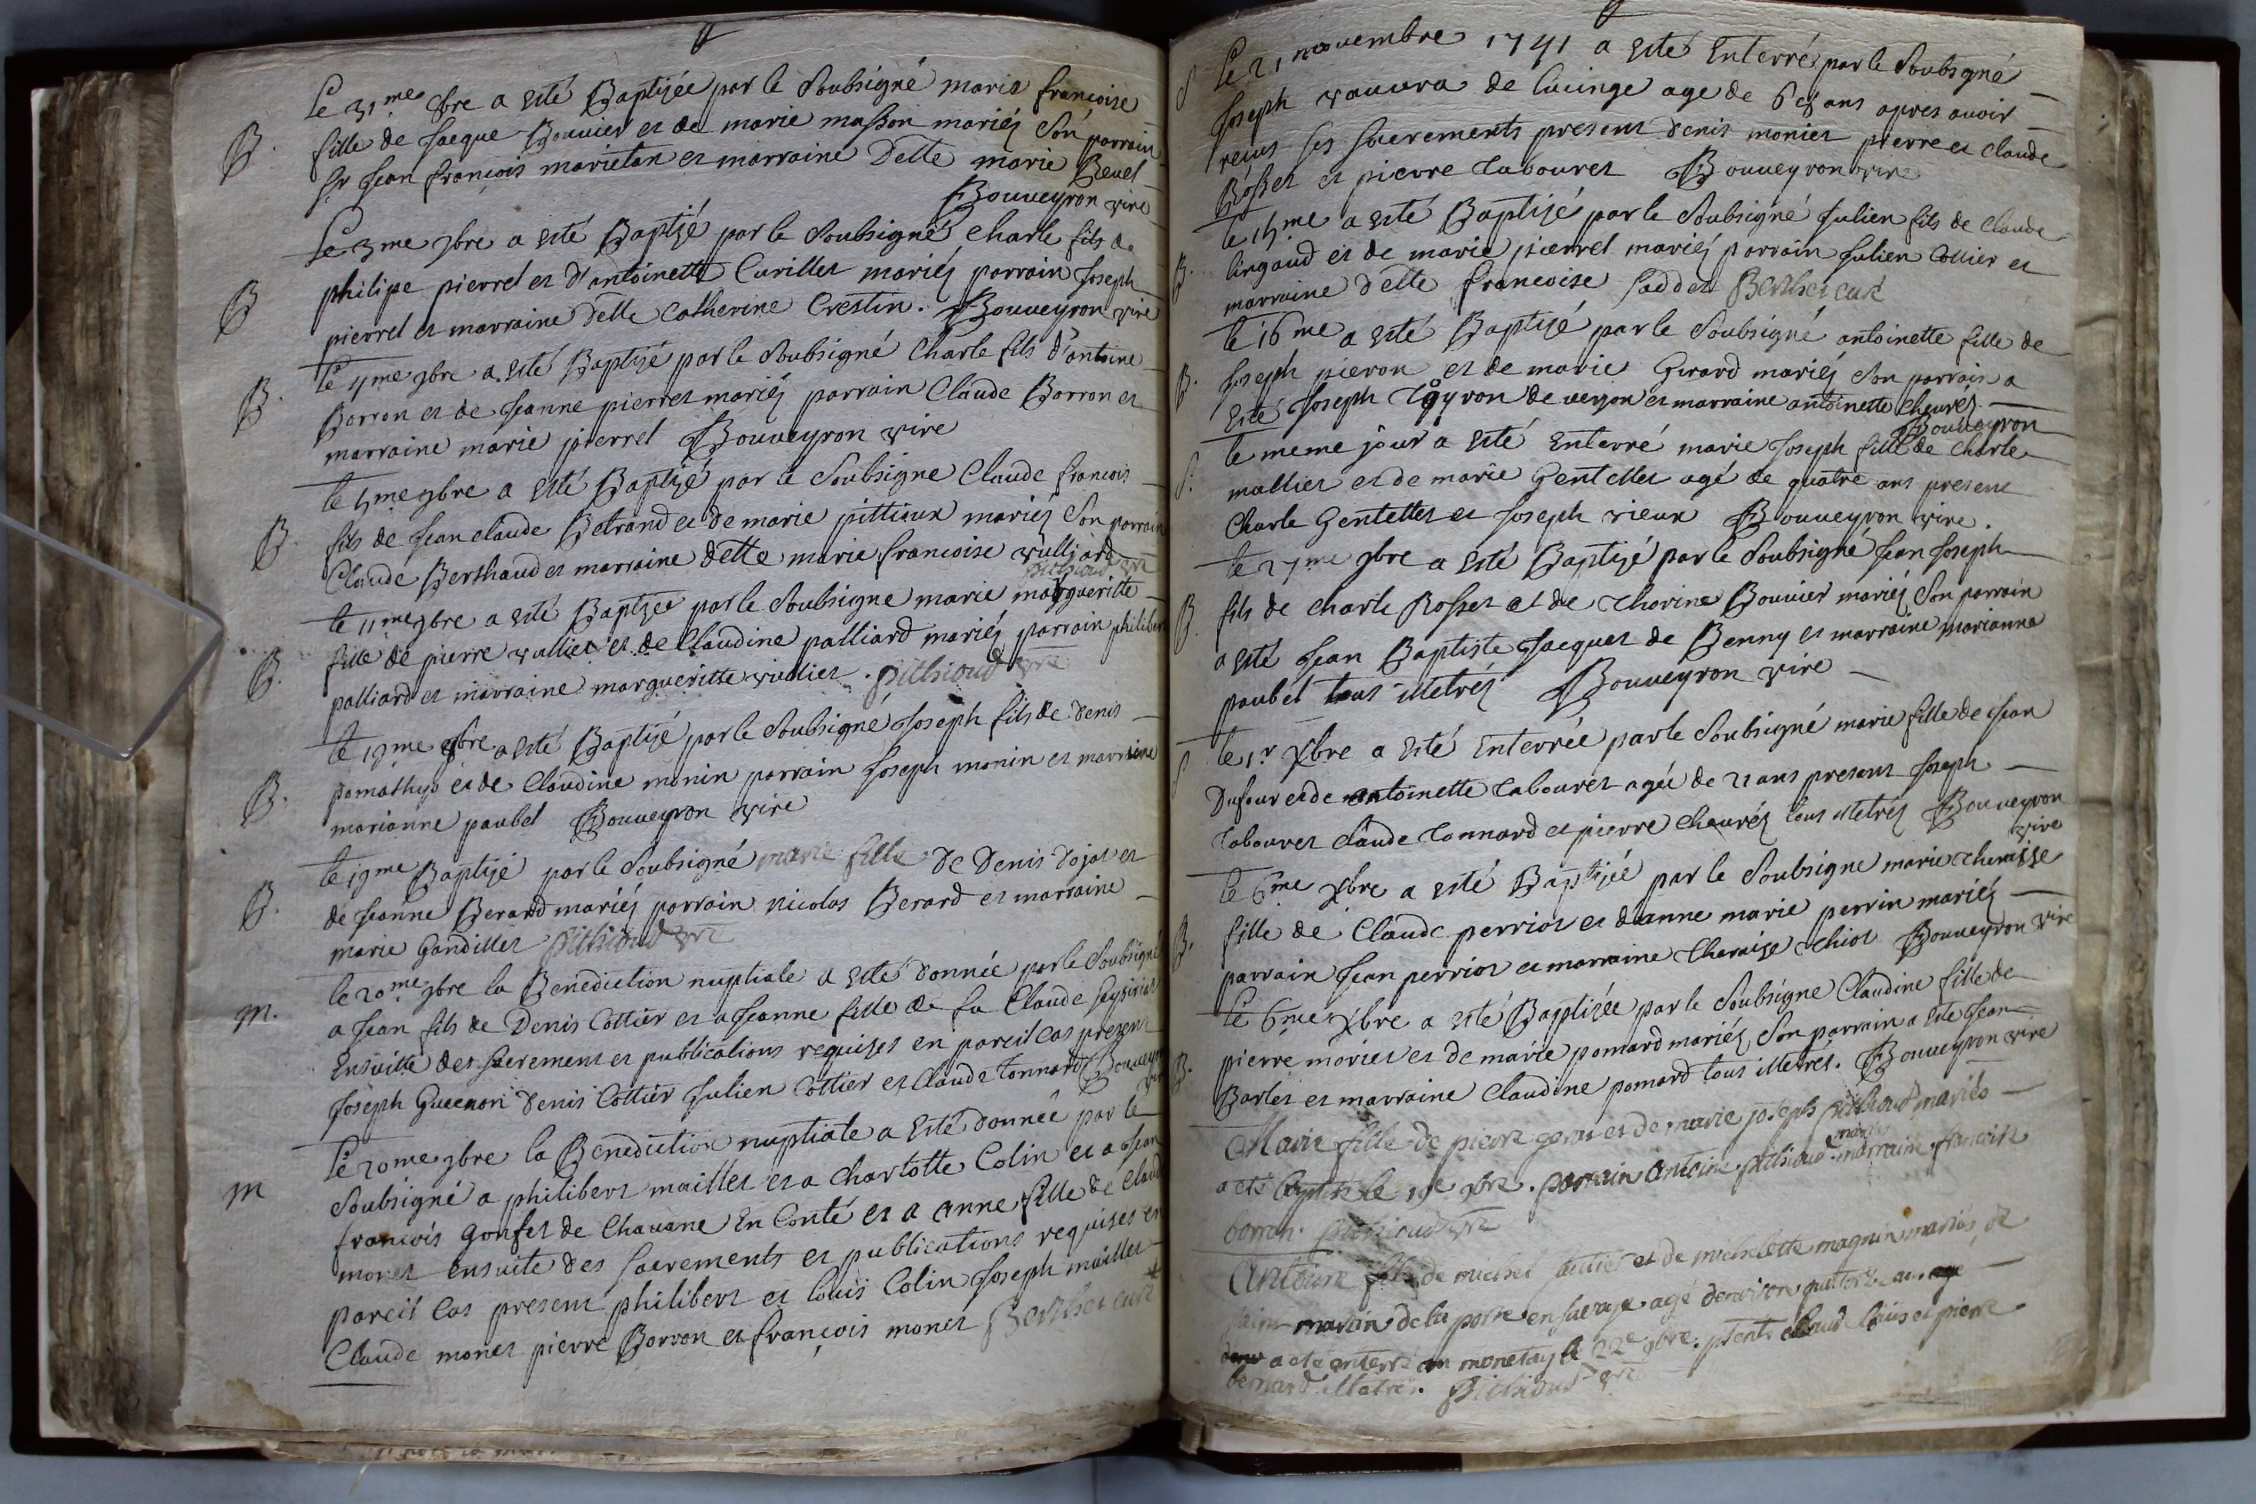 Le 31me 8bre a esté Baptizée par le Soubsigné marie françoise
B. fille de Jacque Bouvier et de marie masson mariéz Son parrain
Sr Jean françois marietan et marraine Delle marie Revel
Bouveyron vire
Le 3me 9bre a esté Baptizé par le Soubsigné Charle fils de
B philipe pierrel et d'antoinette Curillet mariéz parrain Joseph
pierrel et marraine Delle Catherine Crestin. Bouveyron vire
le 4me 9bre a esté Baptizé par le Soubsigné Charle fils d'antoine
B. Borron et de Jeanne pierret mariéz parrain Claude Borron et
marraine marie pierrel Bouveyron vire
le 5me 9bre a esté Baptizé par le Soubsigne Claude francois
B. fils de Jean claude Betrand et de marie pittioux mariéz Son parrain
Claude Berthaud et marraine delle marie francoise vulliard
pithioud vre
le 11me 9bre a esté Baptizée par le Soubsigne marie margueritte
B. fille de pierre vulliet et de Claudine palliard mariéz parrain philibert
palliard et marraine margueritte vulliet. pithioud vre
le 19me 9bre a esté Baptizé par le Soubsigné Joseph fils de Denis
B. pomathyo et de Claudine monin parrain Joseph monin et marraine
marianne paubel Bouveyron vire
le 19me Baptizé par le Soubsigné marie fille de Denis Dojat et
B. de Jeanne Berard mariéz parrain nicolas Berard et marraine
marie Gandillet pithioud vre
le 20me 9bre la Benediction nuptiale a esté donnée par le Soubsigné
m. a Jean fils de Denis Cottier et a Jeanne fille de fu Claude
Ensuitte des sacrement et publications requises en pareil cas present
Joseph Gueenon Denis Cottier Julien Cottier et Claude Tonnard Bouveyron
vire
le 20me 9bre la Benediction nuptiale a esté donnée par le
m Soubsigné a philibert maillet et a Charlotte Colin et a Jean
francois Gonfet de Chavane En Conté et a anne fille de Claude
monet ensuite des sacrements et publications requises en
pareil Cas present philibert et louis Colin Joseph maillet
Claude monet pierre Borron et françois monet Berthet curé
Le 21 novembre 1741 a esté Enterré par le Soubsigné
S Joseph vauvra de lucinge age de 68 ans apres avoir
reçus ses sacrements present Denis monier pierre et Claude
Rosset et pierre Tabouret Bouveyron vire
le 15me a esté Baptizé par le Soubsigné Julien fils de Claude
B. lingaud et de marie pierrel mariéz parrain Julien Cottier et
marraine Delle francoise Berthet curé
le 16me a esté Baptizé par le Soubsigné antoinette fille de
B. Joseph pieron et de marie Girard mariéz Son parrain a
Esté Joseph de verjon et marraine antoinette Chevrel
Bouveyron
le meme jour a esté Enterré marie Joseph fille de Charle
S. mallier et de marie Gentellet agé de quatre ans present
Charle Gentellet et Joseph vieux Bouveyron vire.
le 27me 9bre a esté Baptizé par le Soubsigné Jean Joseph
B fils de charle Rosset et de Thorine Bouvier mariéz Son parrain
a esté Jean Baptiste Jacquet de Benny et marraine marianne
paubel tous illetréz Bouveyron vire
S le 1r Xbre a esté Enterrée par le Soubsigné marie fille de Jean
Dufour et de antoinette Tabouret agée de 21 ans present Joseph
Tabouret Claude Tonnard et pierre Chevréz tous illetréz Bouveyron
vire
le 6me Xbre a esté Baptizée par le Soubsigne marie theraise
B. fille de Claude perriot et d'anne marie perrin mariéz
parrain Jean perriot et marraine theraise thiot Bouveyron vire
Le 6me Xbre a esté Baptisée par le Soubsigne Claudine fille de
B. pierre moriet et de marie pomard mariéz, Son parrain a esté Jean
Barlet et marraine Claudine pomard tous illetrés. Bouveyron vire
Marie fille de pierre et de marie joseph pithioud mariés
a eté baptisée le 19e 9bre. parrain antoine pithioud marraine francoise
borron. pithioud vre
Antoine fils de michel et de michelette magnin mariés de
saint martin de la porte en savoye agé denviron quatorze ans
a eté enterré en monetay le 22e 9bre. présents claude louis et pierre
bernard illetrés. pithioud vre